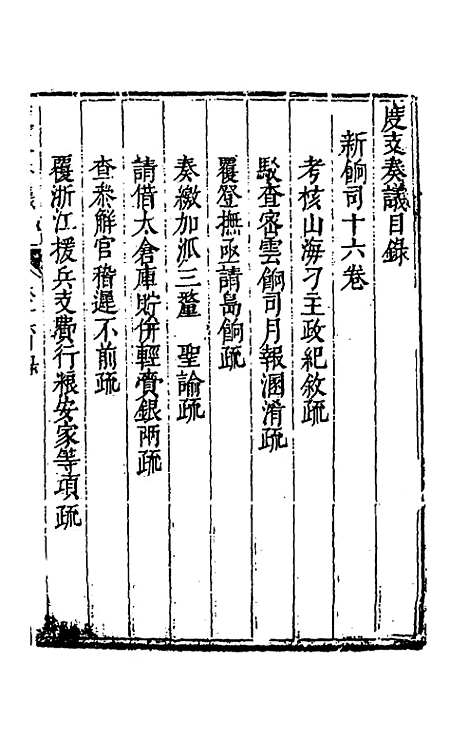 度支奏議目錄
新餉司十六卷
考核山海刁主政紀敘疏
駁查密雲餉司月報溷淆疏
覆登撫亟請島餉疏
奏繳加派三釐　聖諭疏
請借太倉庫貯併輕賫銀兩疏
查叅解官稽遲不前疏
覆浙江援兵支費行粮安家等項疏